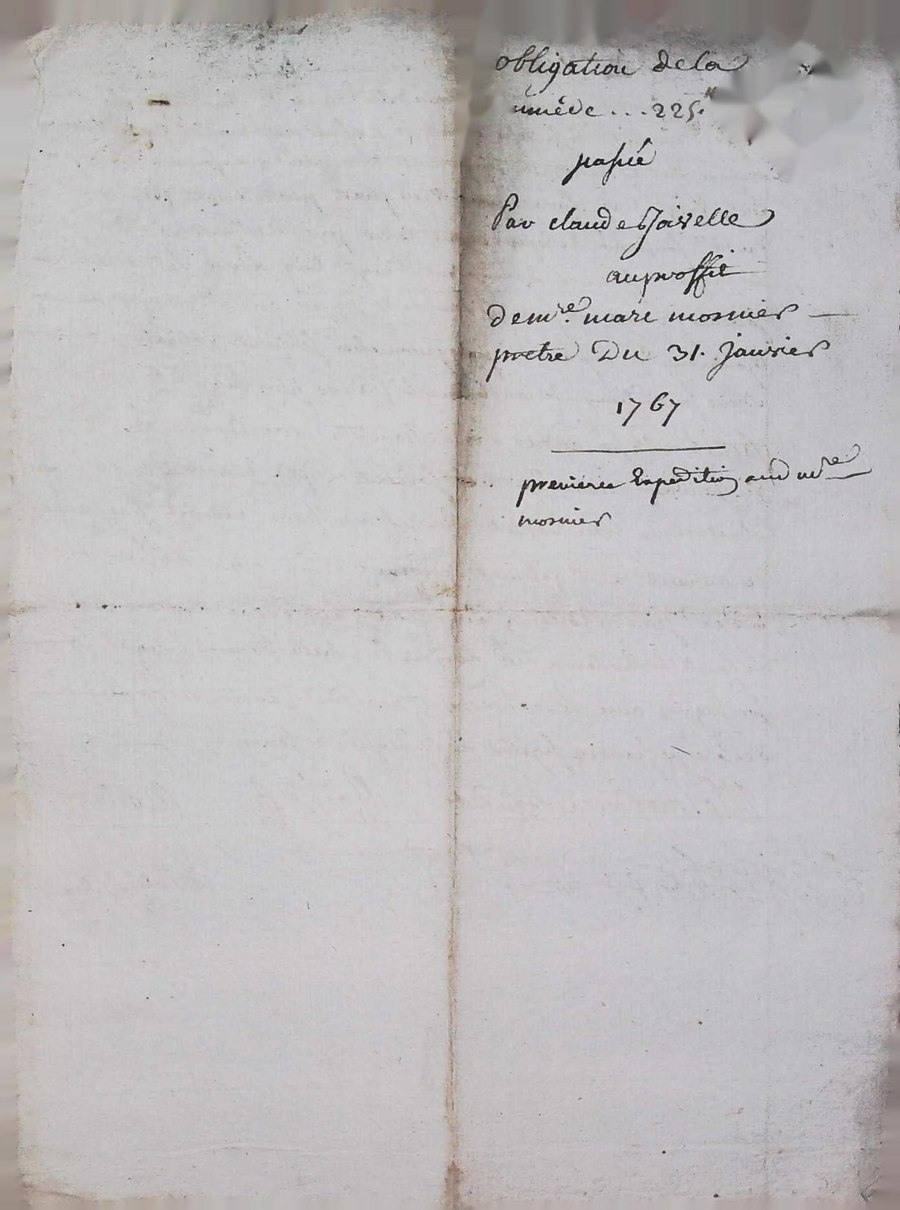 obligation de la
...225.tt
passée
Par claude Javelle
au proffit
de mre. marc mosnier
pretre Du 31. janvier
1767
premiere Expedition aud mre
mosnier